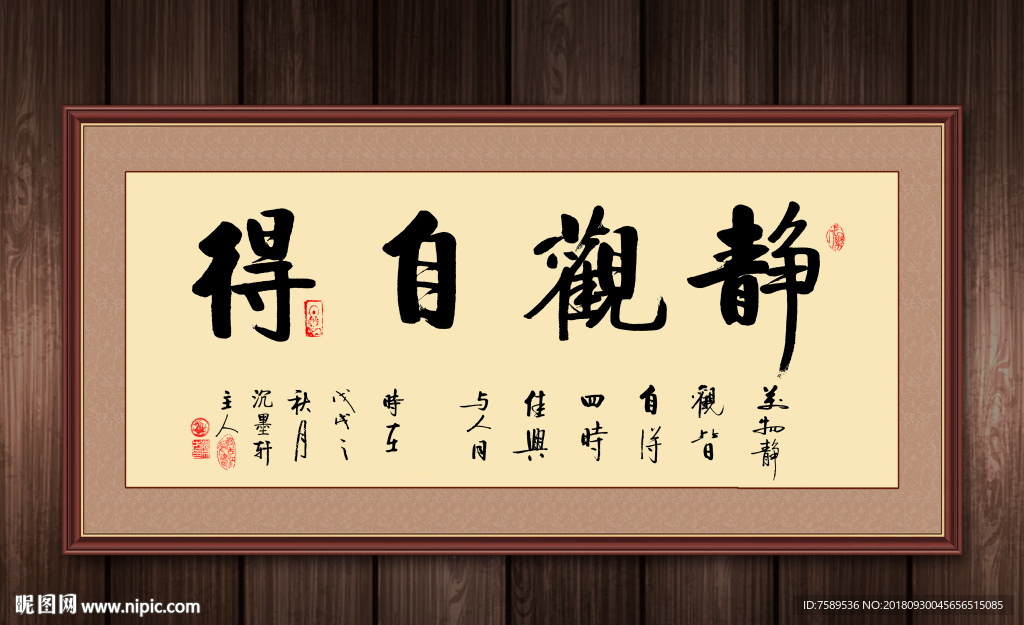 静觀自得
萬物静
觀皆
自得
四時
佳興
与人同
時在
戊戌之
秋月
沉墨轩
主人
昵图网 www.nipic.com
ID:7589536 NO:20180930045656515085